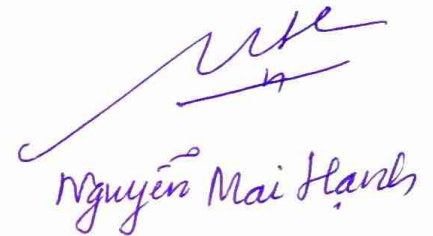 Nguyễn Mai Hạnh